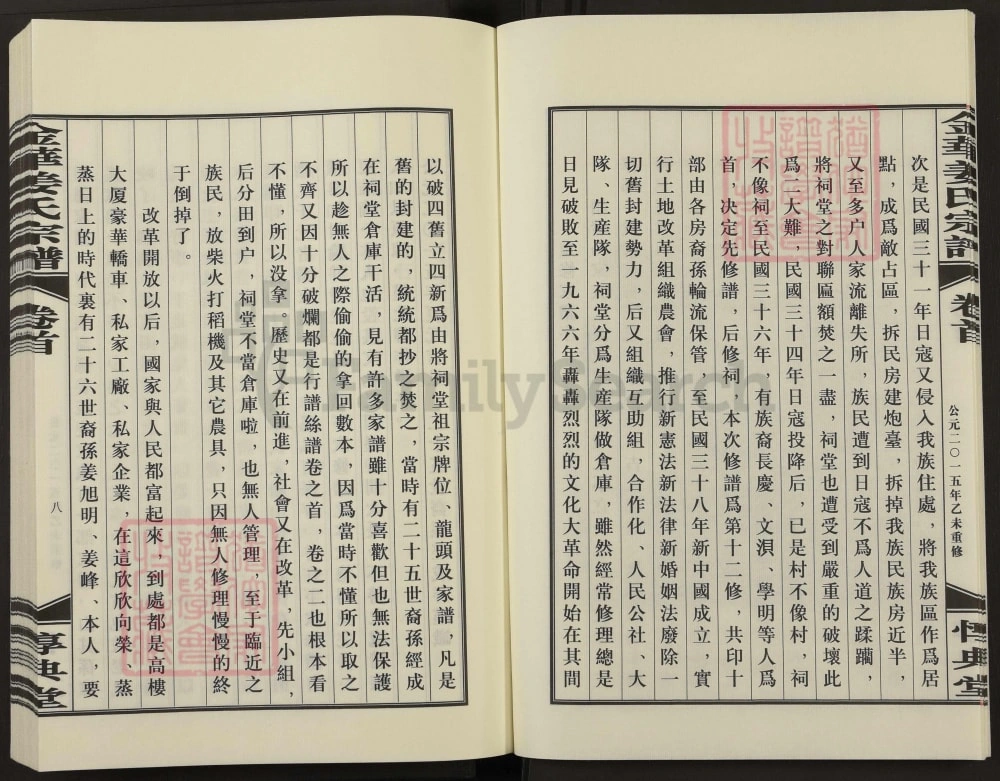 金華姜氏宗譜
卷首
公元二〇一五年乙未重修
惇典堂
次是民國三十一年日寇又侵入我族住處，將我族區作爲居
點，成爲敵占區，拆民房建炮臺，拆掉我族民族房近半，
又至多户人家流離失所，族民遭到日寇不爲人道之蹂躪，
將祠堂之對聯匾額焚之一盡，祠堂也遭受到嚴重的破壞此
爲二大難，民國三十四年日寇投降后，已是村不像村，祠
不像祠至民國三十六年，有族裔長慶、文湨、學明等人爲
首，决定先修譜，后修祠，本次修譜爲第十二修，共印十
部由各房裔孫輪流保管，至民國三十八年新中國成立，實
行土地改革組織農會，推行新憲法新法律新婚姻法廢除一
切舊封建勢力，后又組織互助組，合作化、人民公社、大
隊、生産隊，祠堂分爲生産隊做倉庫，雖然經常修理總是
日見破敗至一九六六年轟轟烈烈的文化大革命開始在其間
以破四舊立四新爲由將祠堂祖宗牌位、龍頭及家譜，凡是
舊的封建的，統統都抄之焚之，當時有二十五世裔孫經成
在祠堂倉庫干活，見有許多家譜雖十分喜歡但也無法保護
所以趁無人之際偷偷的拿回數本，因爲當時不懂所以取之
不齊又因十分破爛都是行譜絲譜卷之首，卷之二也根本看
不懂，所以没拿。歷史又在前進，社會又在改革，先小組，
后分田到户，祠堂不當倉庫啦，也無人管理，至于臨近之
族民，放柴火打稻機及其它農具，只因無人修理慢慢的終
于倒掉了。
改革開放以后，國家與人民都富起來，到處都是高樓
大厦豪華轎車、私家工廠、私家企業，在這欣欣向榮、蒸
蒸日上的時代裏有二十六世裔孫姜旭明、姜峰、本人，要
金華姜氏宗譜
卷首
八
惇典堂
FamilySearch